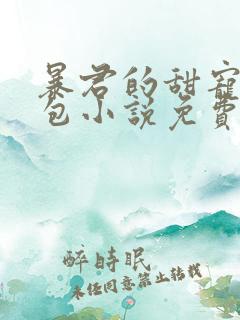 暴君的甜寵
包小說免費
醉時眠
未经同意禁止转载